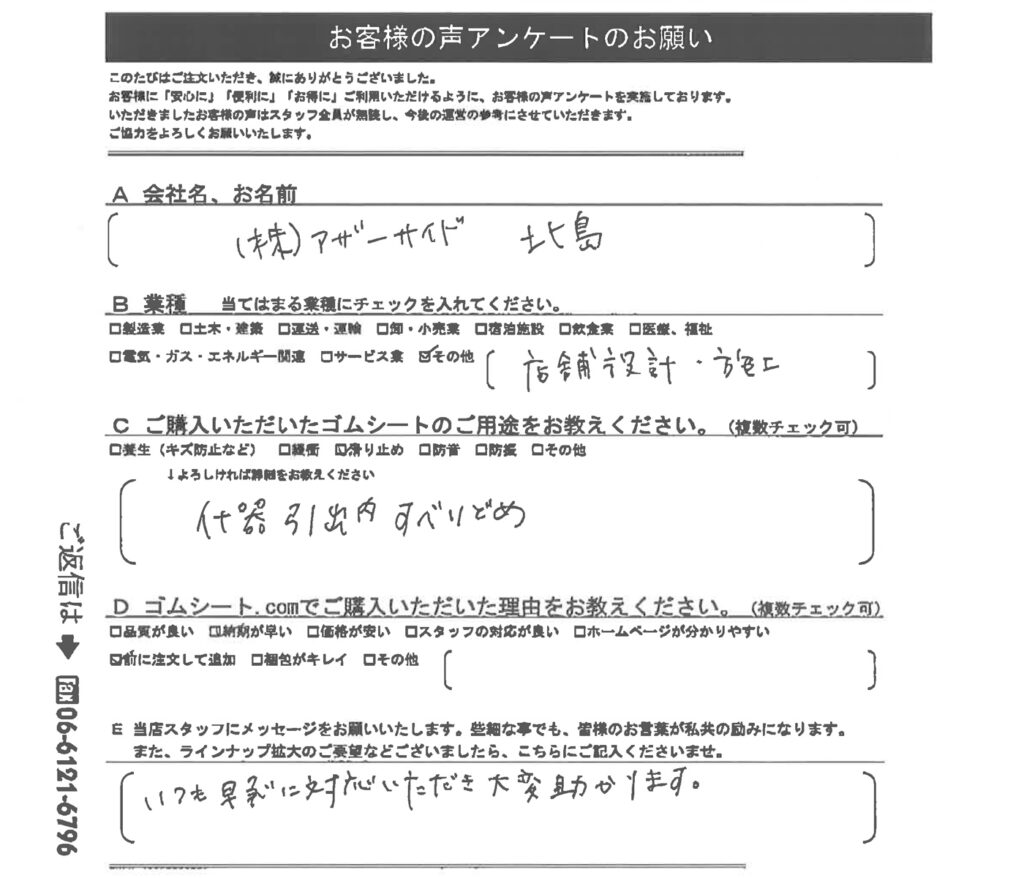 お客様の声アンケートのお願い
このたびはご注文いただき、誠にありがとうございました。
お客様に「安心に」「便利に」「お得に」ご利用いただけるように、お客様の声アンケートを実施しております。
いただきましたお客様の声はスタッフ全員が熟読し、今後の運営の参考にさせていただきます。
ご協力をよろしくお願いいたします。
A 会社名、お名前
(株)アザーサイド 北島
B 業種 当てはまる業種にチェックを入れてください。
□製造業 □土木・建築 □運送・運輸 □卸・小売業 □宿泊施設 □飲食業 □医療、福祉
□電気・ガス・エネルギー関連 □サービス業 ☑その他 店舗設計・施工
C ご購入いただいたゴムシートのご用途をお教えください。(複数チェック可)
□養生(キズ防止など) □緩衝 ☑滑り止め □防音 □防振 □その他
↓よろしければ詳細をお教えください
什器引出内すべりどめ
D ゴムシート.comでご購入いただいた理由をお教えください。(複数チェック可)
□品質が良い ☑納期が早い □価格が安い □スタッフの対応が良い □ホームページが分かりやすい
☑前に注文して追加 □梱包がキレイ □その他
E 当店スタッフにメッセージをお願いいたします。些細な事でも、皆様のお言葉が私共の励みになります。
また、ラインナップ拡大のご要望などございましたら、こちらにご記入くださいませ。
いつも早急に対応いただき大変助かります。
ご返信は➡fax06-6121-6796